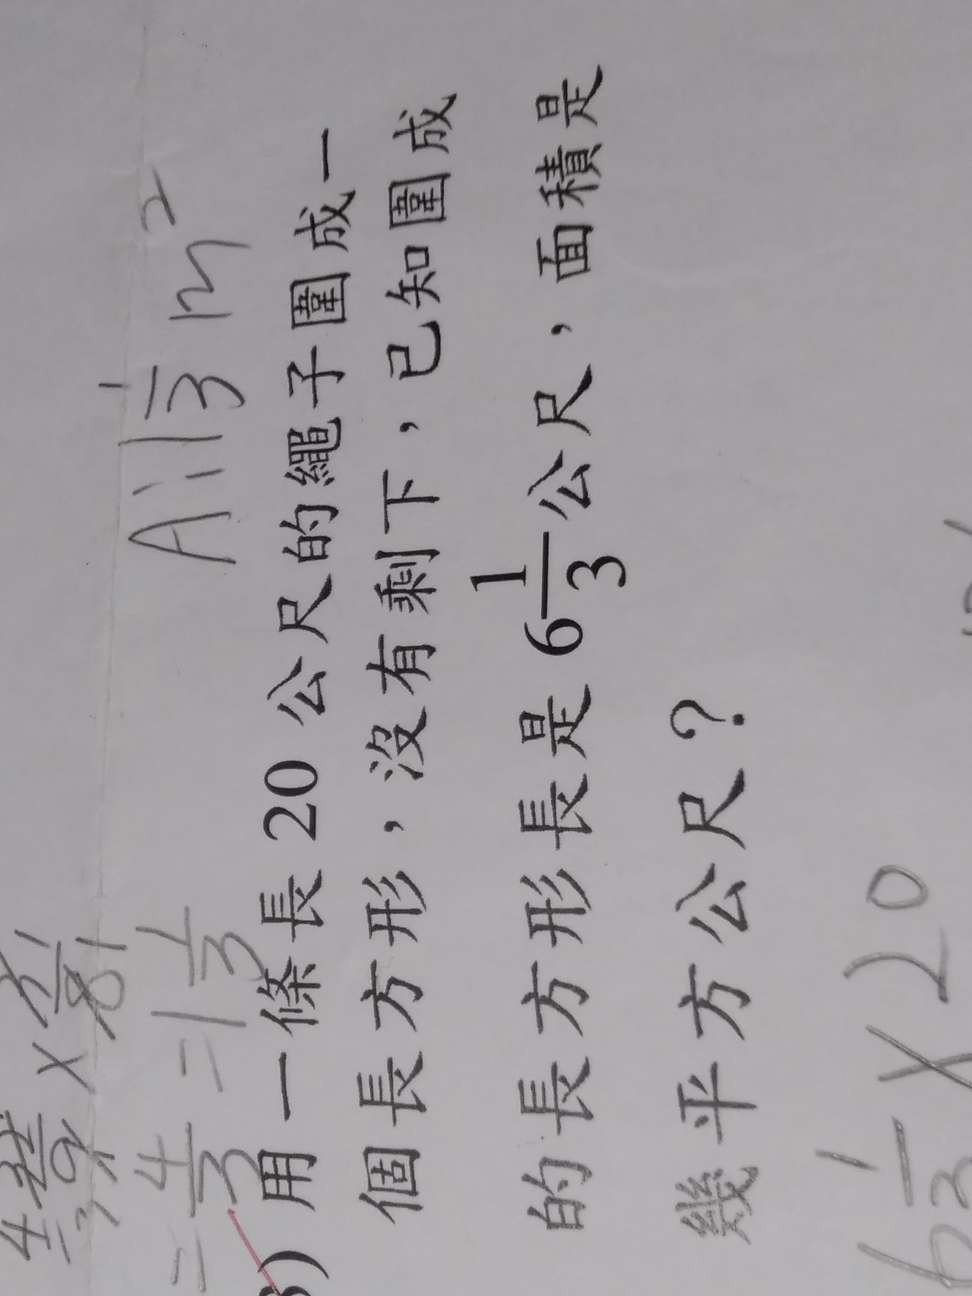 = 4/3 = 1 1/3
A: 1 1/3 m²
用一條長 20 公尺的繩子圍成一
個長方形，沒有剩下，已知圍成
的長方形長是 6 1/3 公尺，面積是
幾平方公尺？
6 1/3 × 20